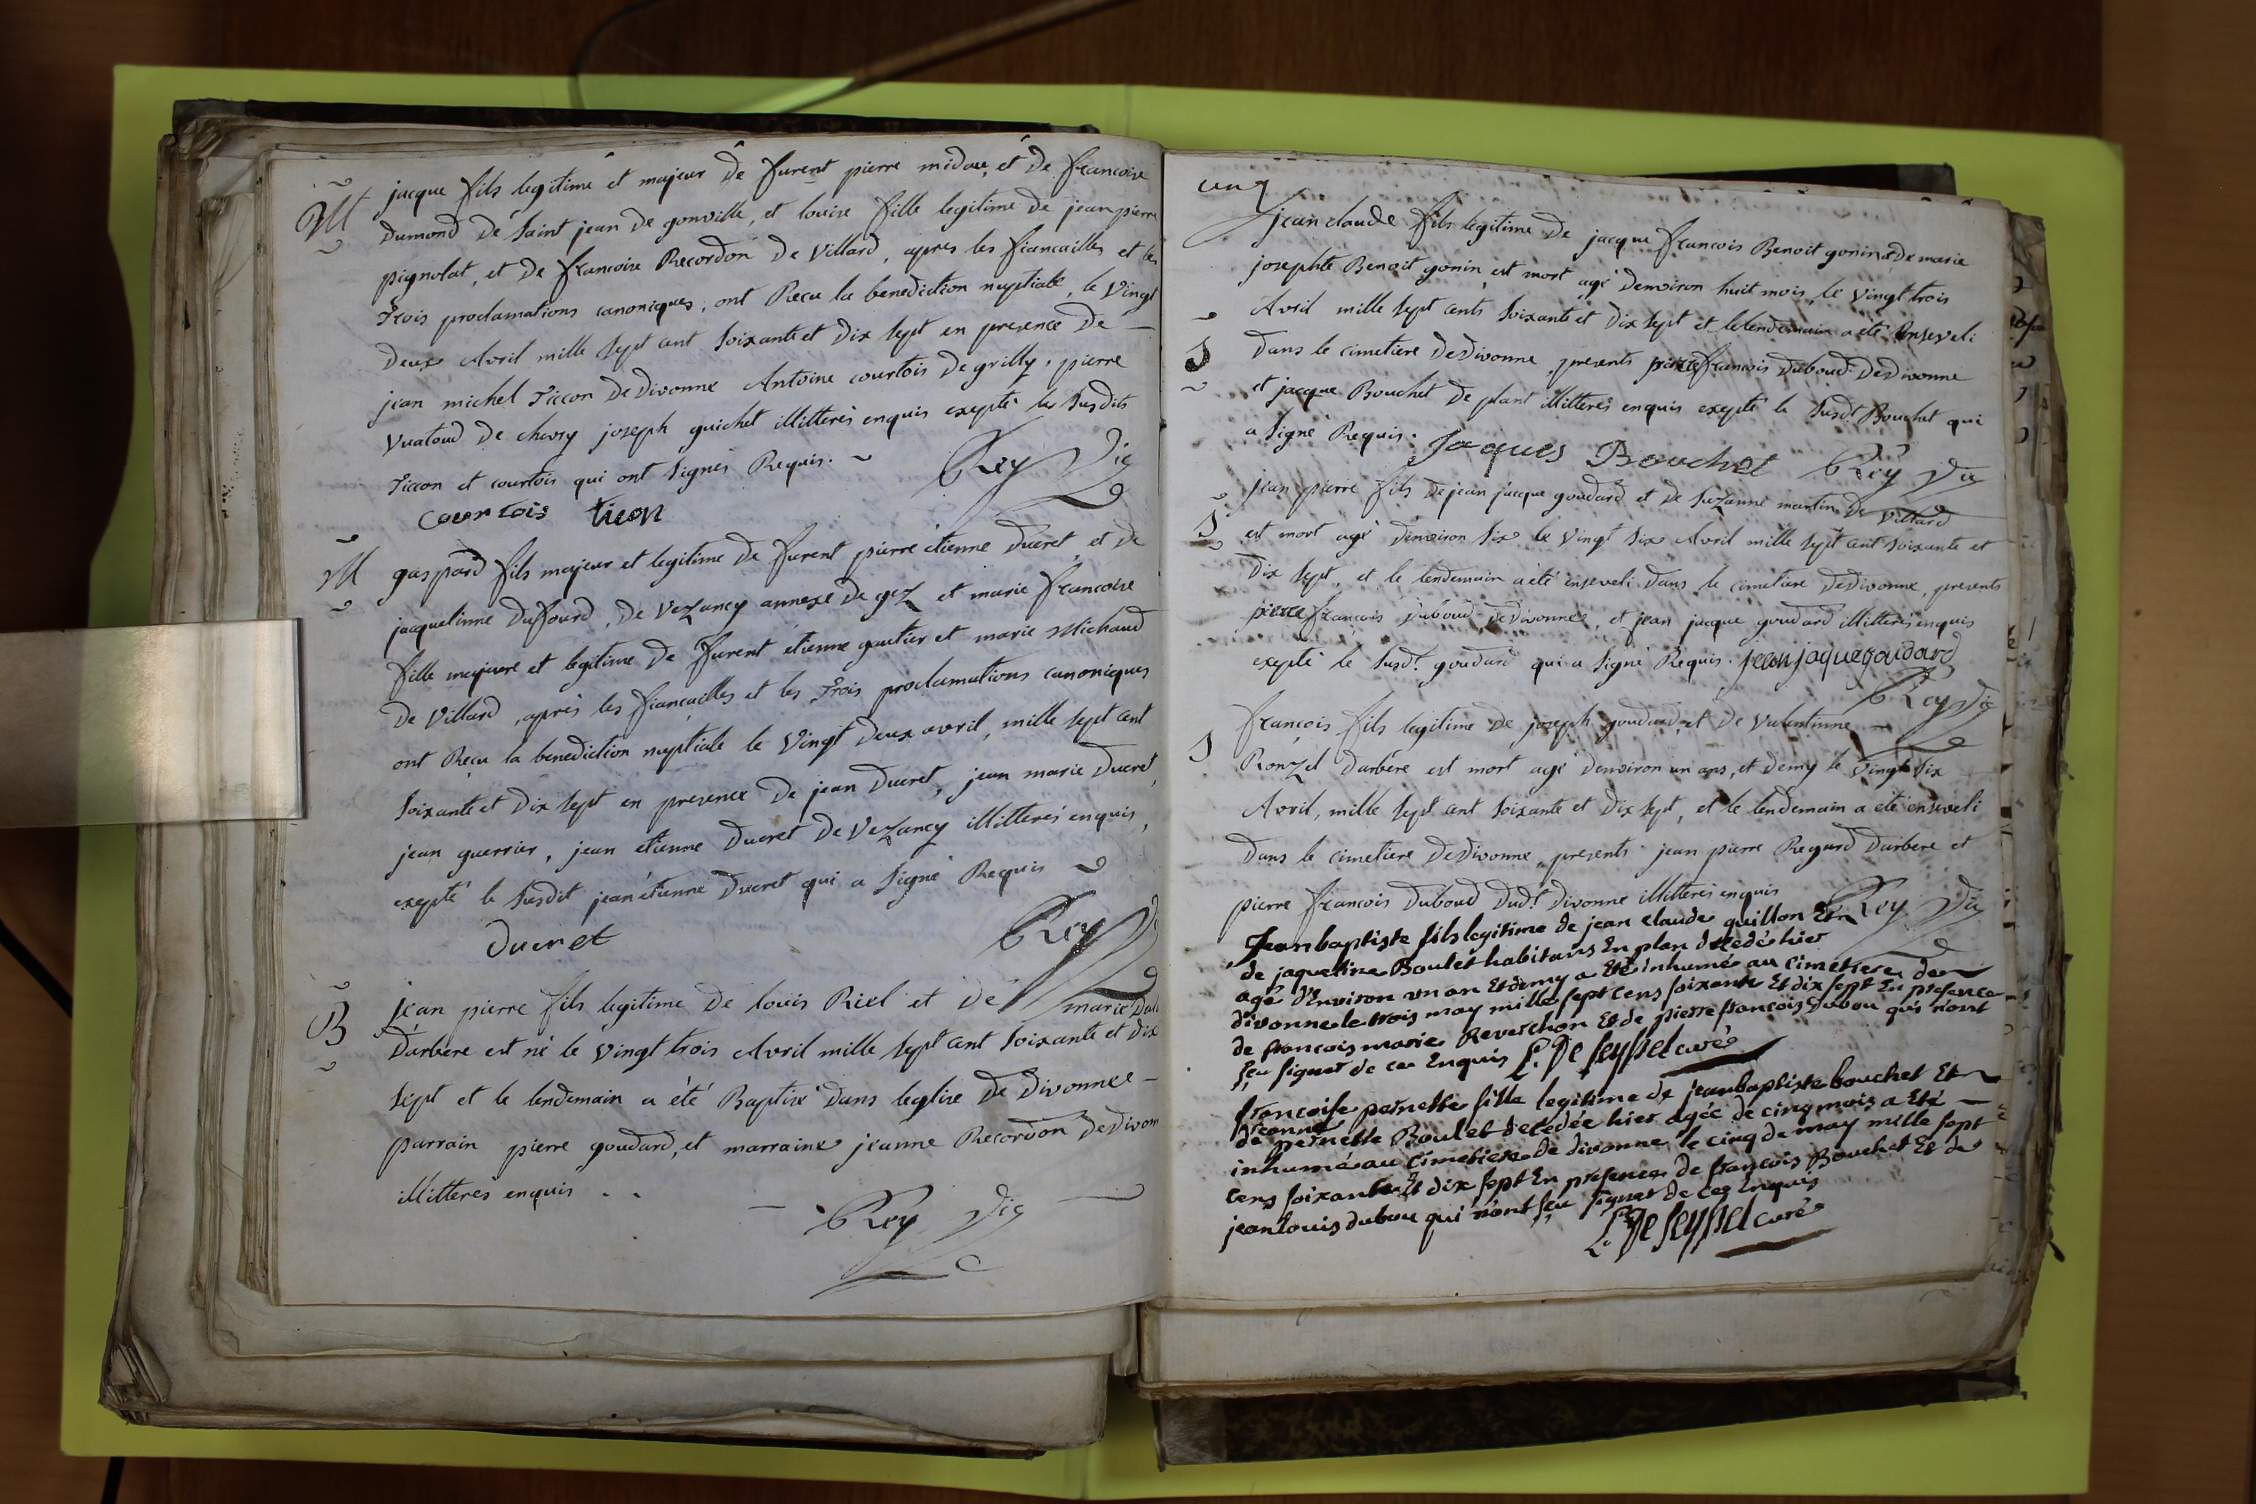 M jacque fils legitime et majeur de furent pierre midau, et de francoise
dumond de Saint jean de gonville, et louise fille legitime de jean pierre
pignolat, et de francoise Recordon de Villard, apres les fiancailles et les
Trois proclamations canoniques, ont Recu la benediction nuptiale, le Vingt
deux Avril mille sept cent soixante et dix sept en presence de —
jean michel Ticon de Divonne Antoine courtois de grilly, pierre
Vuatoud de chevry joseph guichet illitterés enquis exepté les susdits
Ticon et courtois qui ont signés Requis. Rey Vic
courtois ticon
M gaspard fils majeur et legitime de furent pierre étienne Ducret, et de
jacquelinne Duffourd, de Vezancy annexe de gez et marie francoise
fille majeure et legitime de furent etienne gautier et marie Michaud
de Villard, aprés les fiançailles et les Trois proclamations canoniques
ont Reçu la benediction nuptiale le Vingt deux avril, mille sept cent
soixante et dix sept en presence de jean Ducret, jean marie ducret,
jean guerrier, jean étienne Ducret de Vezancy illitterés enquis,
exepté le susdit jean étienne Ducret qui a signé Requis
Ducret Rey
B jean pierre fils legitime de louis Riel et de marie
d'arbere est né le Vingt trois Avril mille sept cent soixante et dix
sept et le lendemain a été Baptisé dans leglise de Divonne —
parrain pierre goudard, et marraine jeanne Recordon de Divonne
illitteres enquis . .
Rey Vic
cinq
jean claude fils legitime de jacque francois Benoit gonin et de marie
josephte Benoit gonin est mort agé denviron huit mois, le Vingt trois
Avril mille sept cents soixante et dix sept et le lendemain a été Enseveli
S dans le cimetiere de Divonne, presents pierre francois duboud de Divonne
et jacque Bouchet de plant illitterés enquis exepté le susdt Bouchet qui
a signé Requis. Jaques Bouchet Rey Vic
S jean pierre fils de jean jacque goudard et de suzanne martin de Villard
est mort agé denviron six le vingt six Avril mille sept cent soixante et
dix sept, et le lendemain a été enseveli dans le cimetiere de Divonne, presents
pierre françois duboud de Divonne, et jean jacque goudard illitterés enquis
exepté le susdt. goudard qui a signé Requis. jean jaque goudard
Rey Vic
S françois fils legitime de joseph goudard, et de Valentinne —
Ronzel d'arbere est mort agé denviron un ans, et demy le Vingt six
Avril, mille sept cent soixante et dix sept, et le lendemain a été enseveli
dans le cimetiere de Divonne, presents jean pierre Regard d'arbere et
pierre francois Duboud dudt. Divonne illitterés enquis Rey Vic
Jean baptiste fils legitime de jean claude quillon Et
de jaqueline Boulet habitans En plan decedé hier
agé d'Environ un an Et demy a Eté inhumé au cimetiere de
divonne le trois may mille sept cens soixante Et dix sept En presence
de francois marie Reverchon Et de pierre francois dubou qui n'ont
sçu signer de ce Enquis L. De seyssel curé
francoise pernette fille legitime de jean baptiste bouchet Et
jeanne
de pernette Boulet decedée hier agée de cinq mois a Eté —
inhumée au cimetiere de divonne le cinq de may mille sept
cens soixante Et dix sept En presence de francois Bouchet Et de
jean louis dubou qui n'ont sçu signer de ce Enquis
L. De seyssel curé